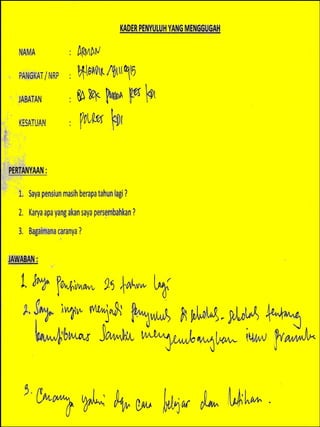 KADER PENYULUH YANG MENGGUGAH
NAMA : ARMAN
PANGKAT / NRP : BRIGADIR /
JABATAN : KDI
KESATUAN : POLRES KDI
PERTANYAAN :
1. Saya pensiun masih berapa tahun lagi ?
2. Karya apa yang akan saya persembahkan ?
3. Bagaimana caranya ?
JAWABAN :
1. Saya Pensiunan 25 tahun lagi
2. Saya ingin menjadi Penyuluh di sekolah-sekolah tentang
kamtibmas sambil mengembangkan ilmu Pramuka
3. Caranya yakni dgn cara belajar dan latihan.